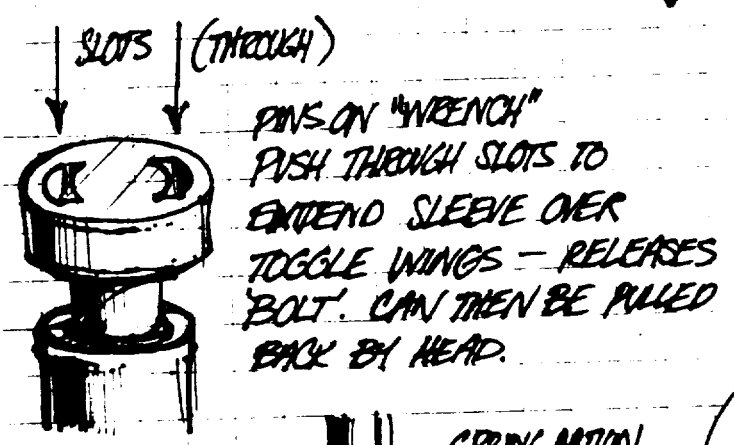 SLOTS (THROUGH)
PINS ON "WRENCH"
PUSH THROUGH SLOTS TO
EXTEND SLEEVE OVER
TOGGLE WINGS — RELEASES
'BOLT'. CAN THEN BE PULLED
BACK BY HEAD.
SPRING ACTION